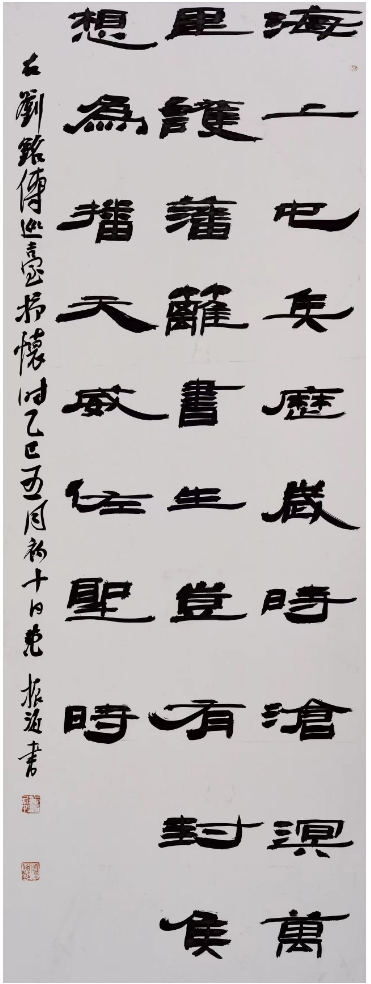 海上屯兵歷歲時滄溟萬
里護藩籬書生豈有封侯
想為播天威佐聖時
右劉銘傳巡臺抒懷时乙巳五月初十日振海書